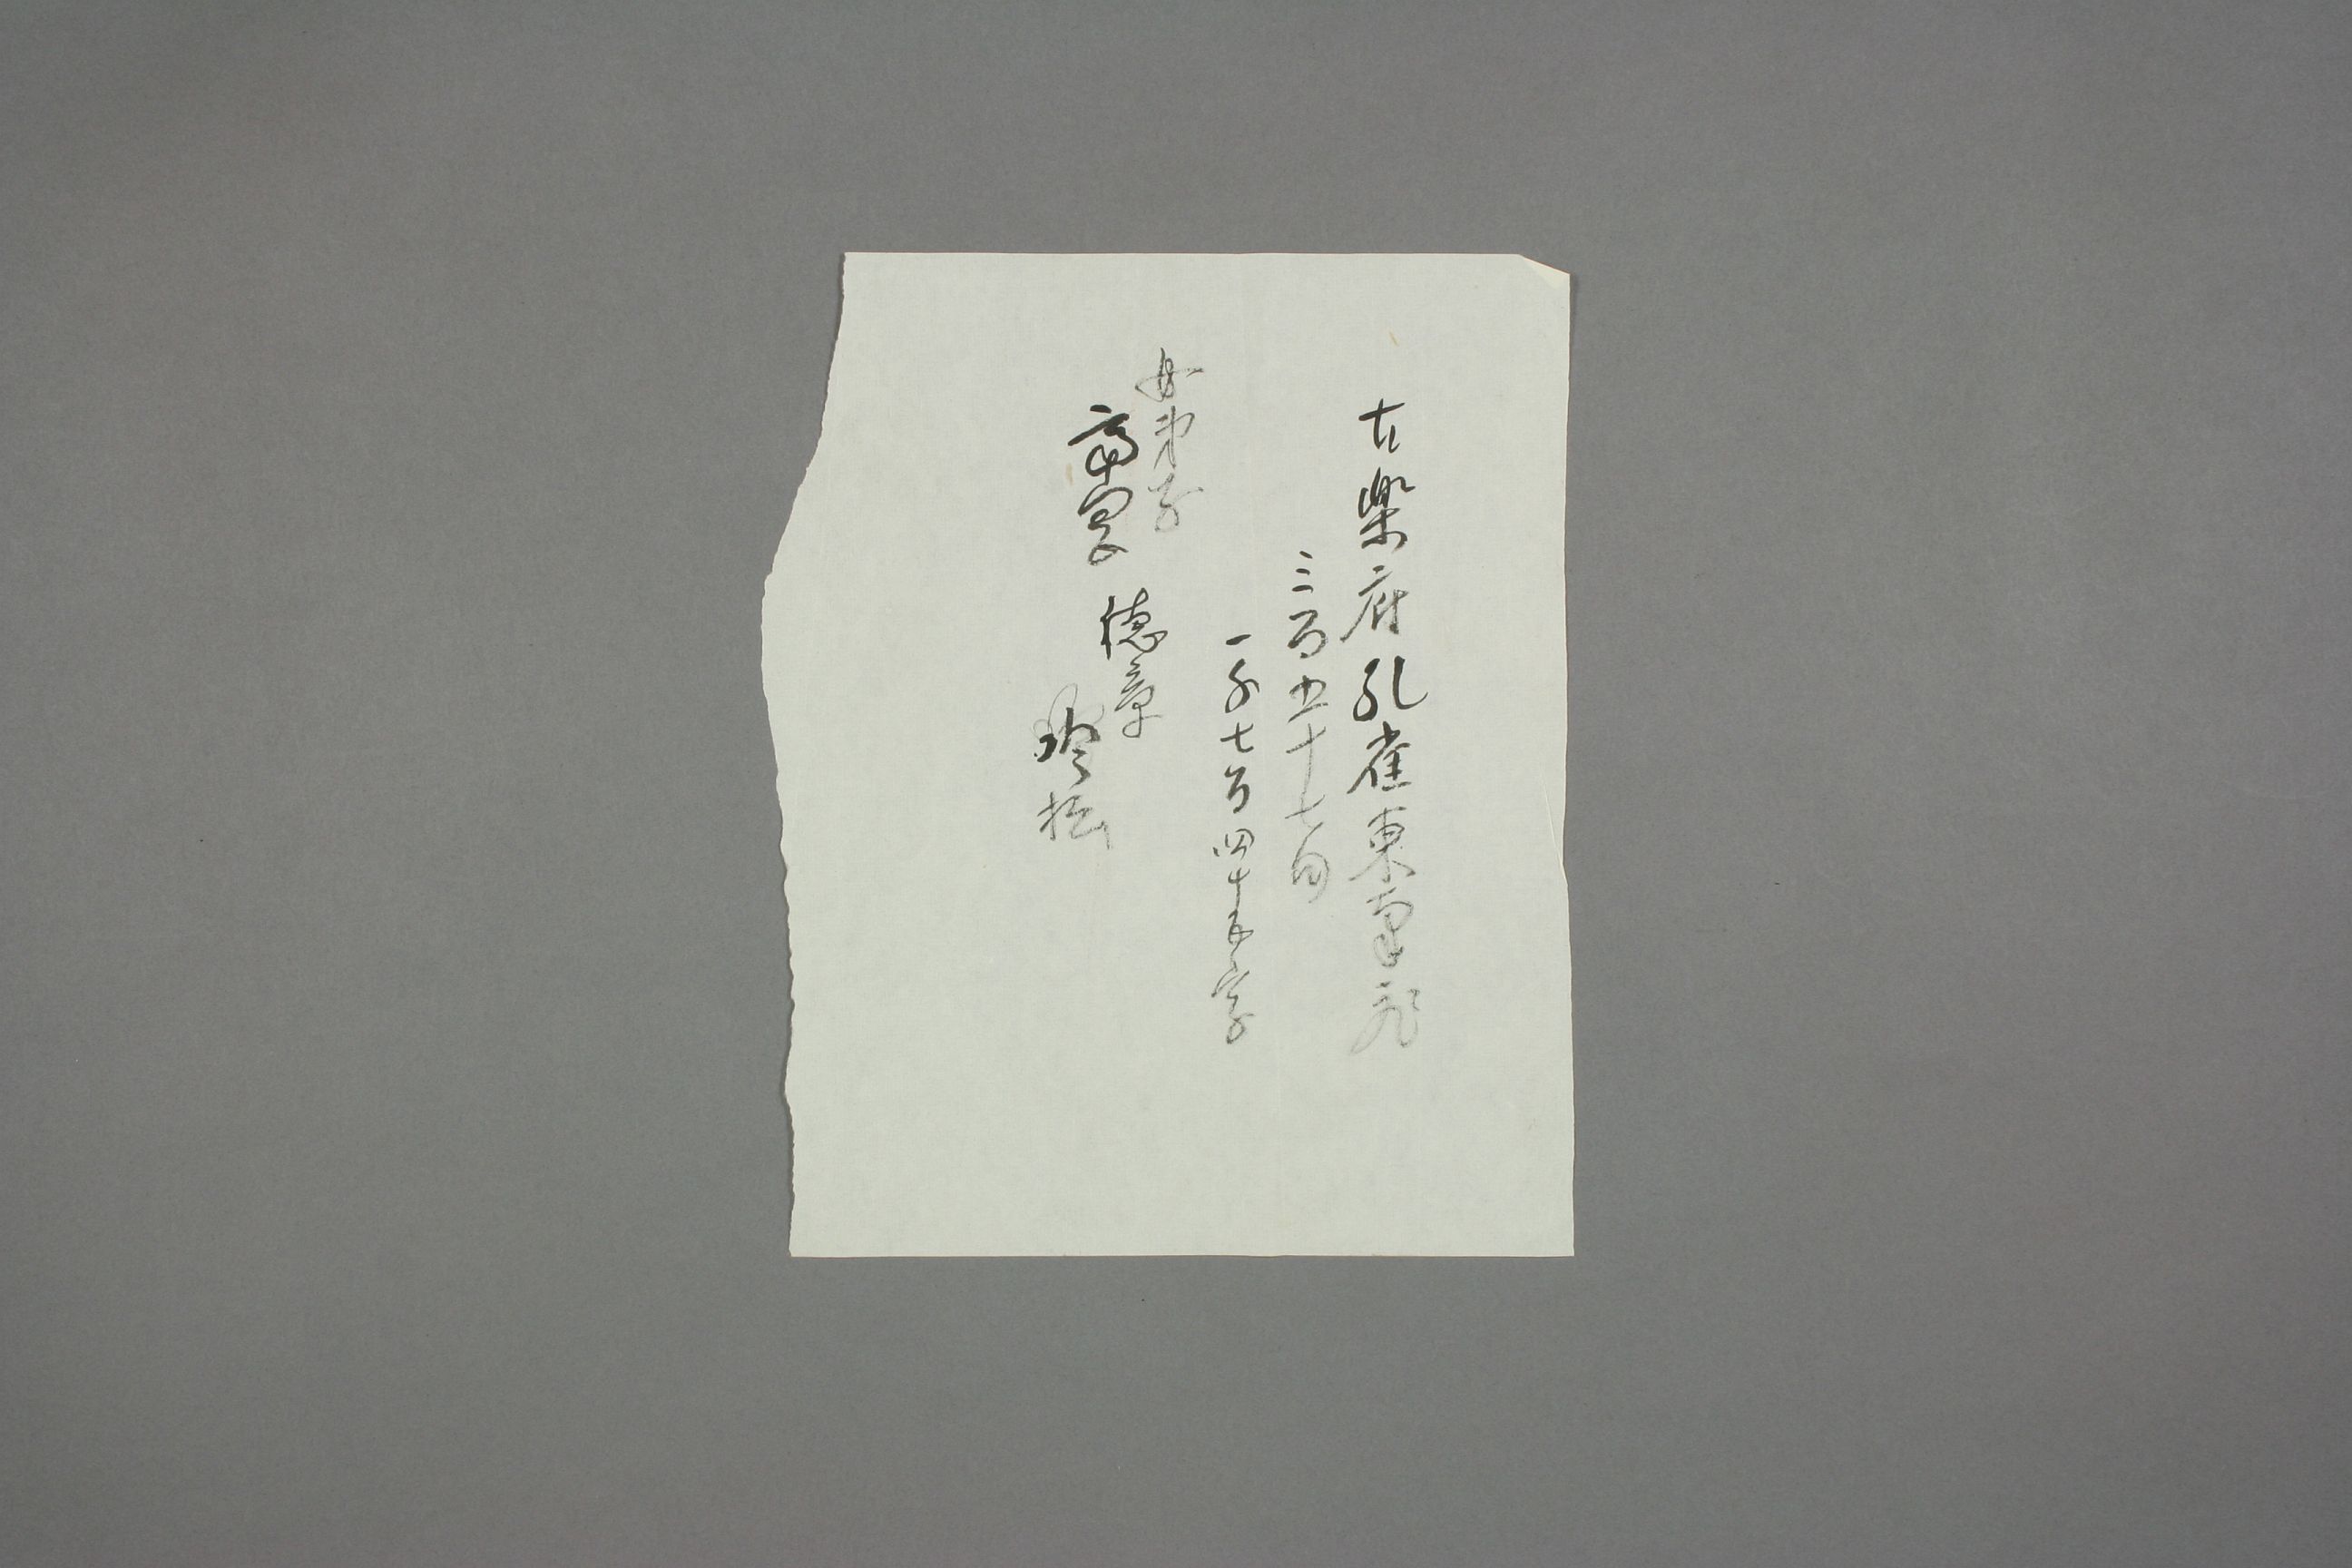 古樂府孔雀東南飛
三百五十七句
一千七百四十五字
女弟子
德章